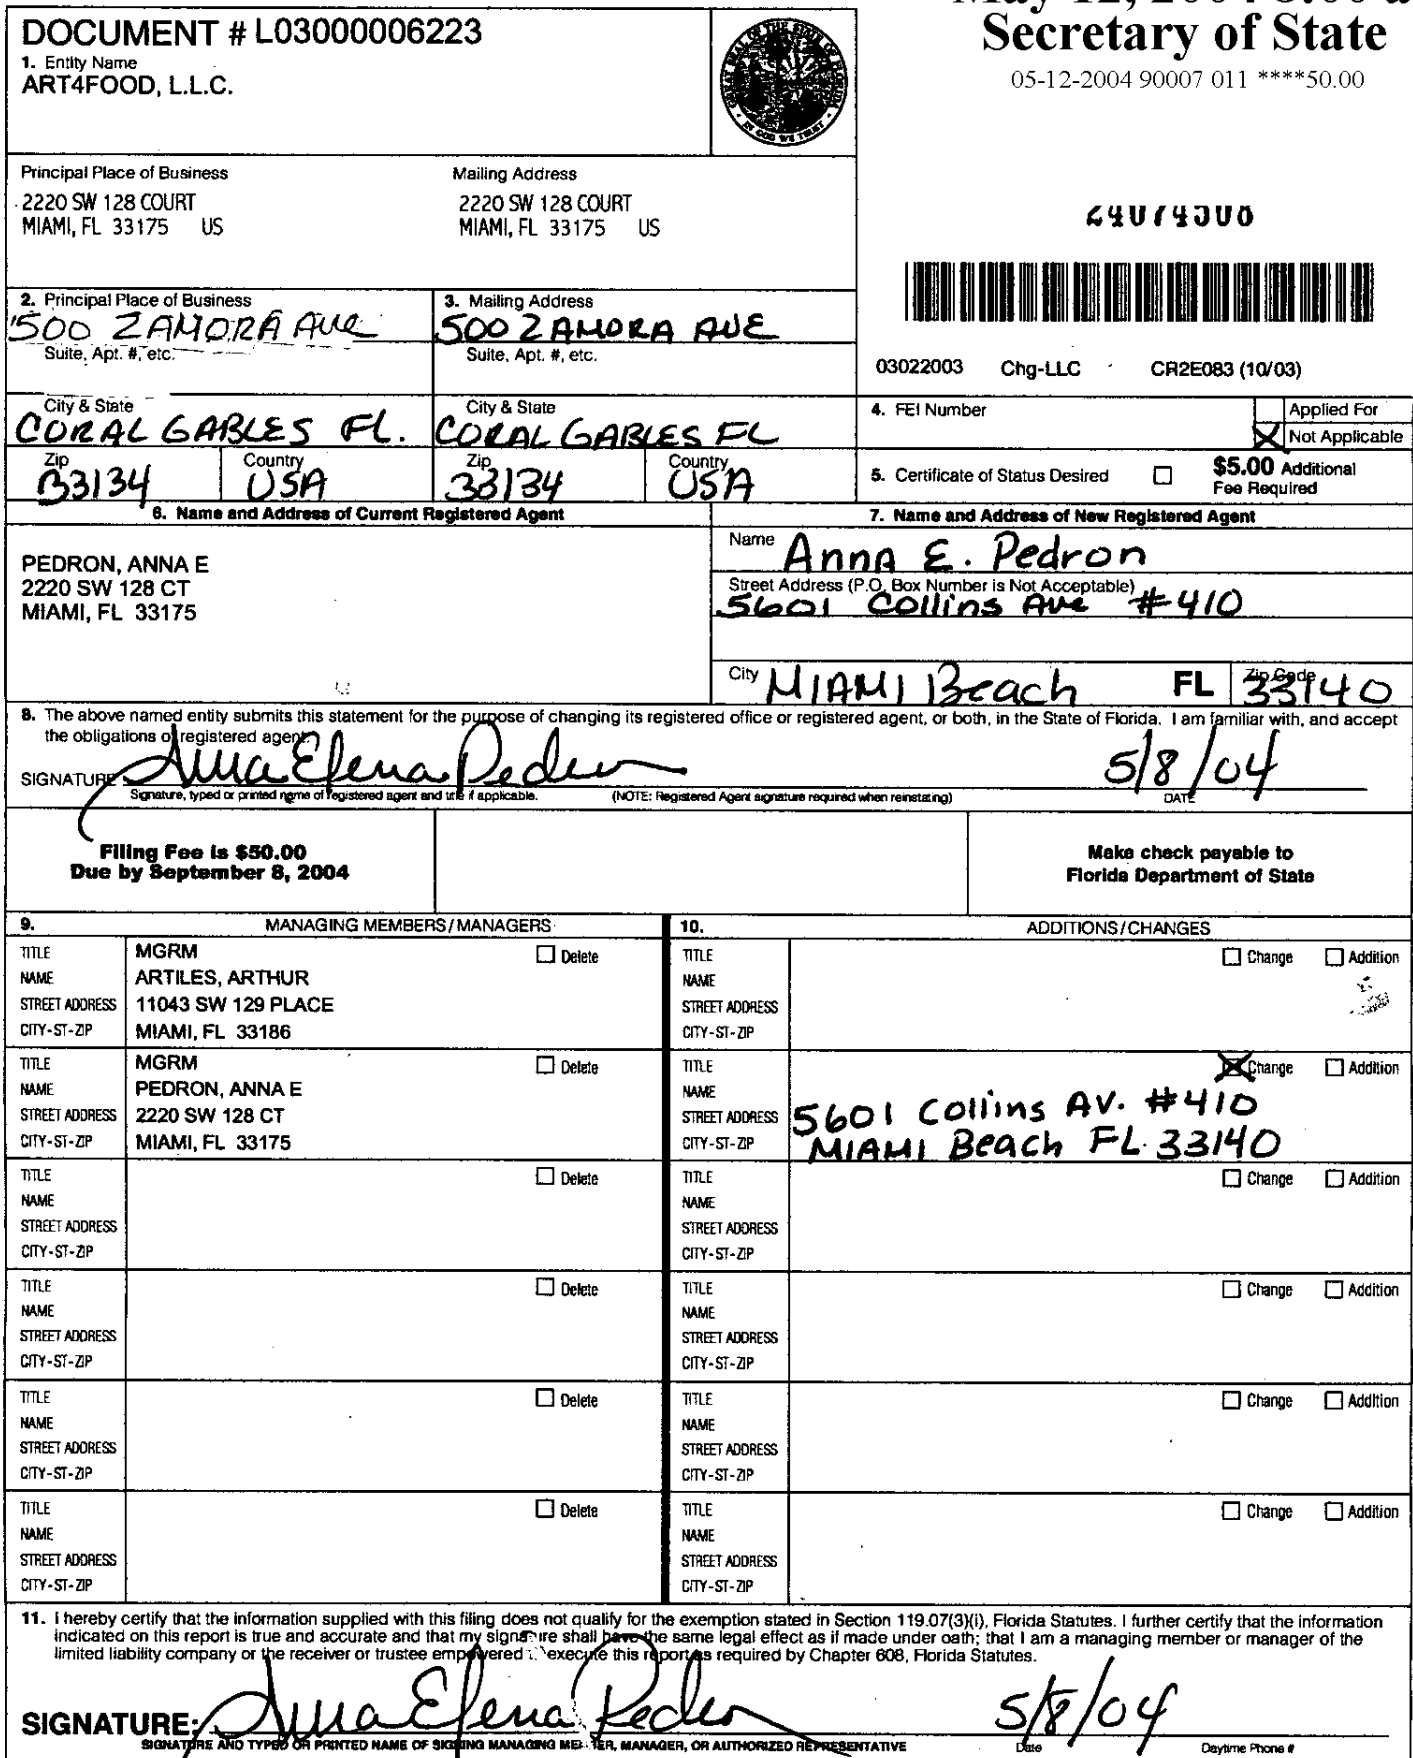 Secretary of State
05-12-2004 90007 011 ****50.00
DOCUMENT # L03000006223
1. Entity Name
ART4FOOD, L.L.C.
Principal Place of Business
2220 SW 128 COURT
MIAMI, FL 33175 US
Mailing Address
2220 SW 128 COURT
MIAMI, FL 33175 US
2. Principal Place of Business
500 ZAMORA AVE
Suite, Apt. #, etc.
3. Mailing Address
500 ZAMORA AVE
Suite, Apt. #, etc.
03022003 Chg-LLC CR2E083 (10/03)
City & State
CORAL GABLES FL.
City & State
CORAL GABLES FL
4. FEI Number
Applied For
Not Applicable
Zip
33134
Country
USA
Zip
33134
Country
USA
5. Certificate of Status Desired
$5.00 Additional
Fee Required
6. Name and Address of Current Registered Agent
PEDRON, ANNA E
2220 SW 128 CT
MIAMI, FL 33175
7. Name and Address of New Registered Agent
Name Anna E. Pedron
Street Address (P.O. Box Number is Not Acceptable)
5601 Collins Ave #410
City MIAMI Beach FL Zip Code 33140
8. The above named entity submits this statement for the purpose of changing its registered office or registered agent, or both, in the State of Florida. I am familiar with, and accept
the obligations of registered agent.
SIGNATURE Anna Elena Pedron 5/8/04
Signature, typed or printed name of registered agent and title if applicable. (NOTE: Registered Agent signature required when reinstating) DATE
Filing Fee is $50.00
Due by September 8, 2004
Make check payable to
Florida Department of State
9. MANAGING MEMBERS/MANAGERS
10. ADDITIONS/CHANGES
TITLE MGRM Delete
NAME ARTILES, ARTHUR
STREET ADDRESS 11043 SW 129 PLACE
CITY-ST-ZIP MIAMI, FL 33186
TITLE Change Addition
NAME
STREET ADDRESS
CITY-ST-ZIP
TITLE MGRM Delete
NAME PEDRON, ANNA E
STREET ADDRESS 2220 SW 128 CT
CITY-ST-ZIP MIAMI, FL 33175
TITLE Change Addition
NAME
STREET ADDRESS 5601 Collins AV. #410
CITY-ST-ZIP MIAMI Beach FL. 33140
TITLE Delete
NAME
STREET ADDRESS
CITY-ST-ZIP
TITLE Change Addition
NAME
STREET ADDRESS
CITY-ST-ZIP
TITLE Delete
NAME
STREET ADDRESS
CITY-ST-ZIP
TITLE Change Addition
NAME
STREET ADDRESS
CITY-ST-ZIP
TITLE Delete
NAME
STREET ADDRESS
CITY-ST-ZIP
TITLE Change Addition
NAME
STREET ADDRESS
CITY-ST-ZIP
TITLE Delete
NAME
STREET ADDRESS
CITY-ST-ZIP
TITLE Change Addition
NAME
STREET ADDRESS
CITY-ST-ZIP
11. I hereby certify that the information supplied with this filing does not qualify for the exemption stated in Section 119.07(3)(i), Florida Statutes. I further certify that the information
indicated on this report is true and accurate and that my signature shall have the same legal effect as if made under oath; that I am a managing member or manager of the
limited liability company or the receiver or trustee empowered to execute this report as required by Chapter 608, Florida Statutes.
SIGNATURE: Anna Elena Pedron 5/8/04
SIGNATURE AND TYPED OR PRINTED NAME OF SIGNING MANAGING MEMBER, MANAGER, OR AUTHORIZED REPRESENTATIVE Date Daytime Phone #